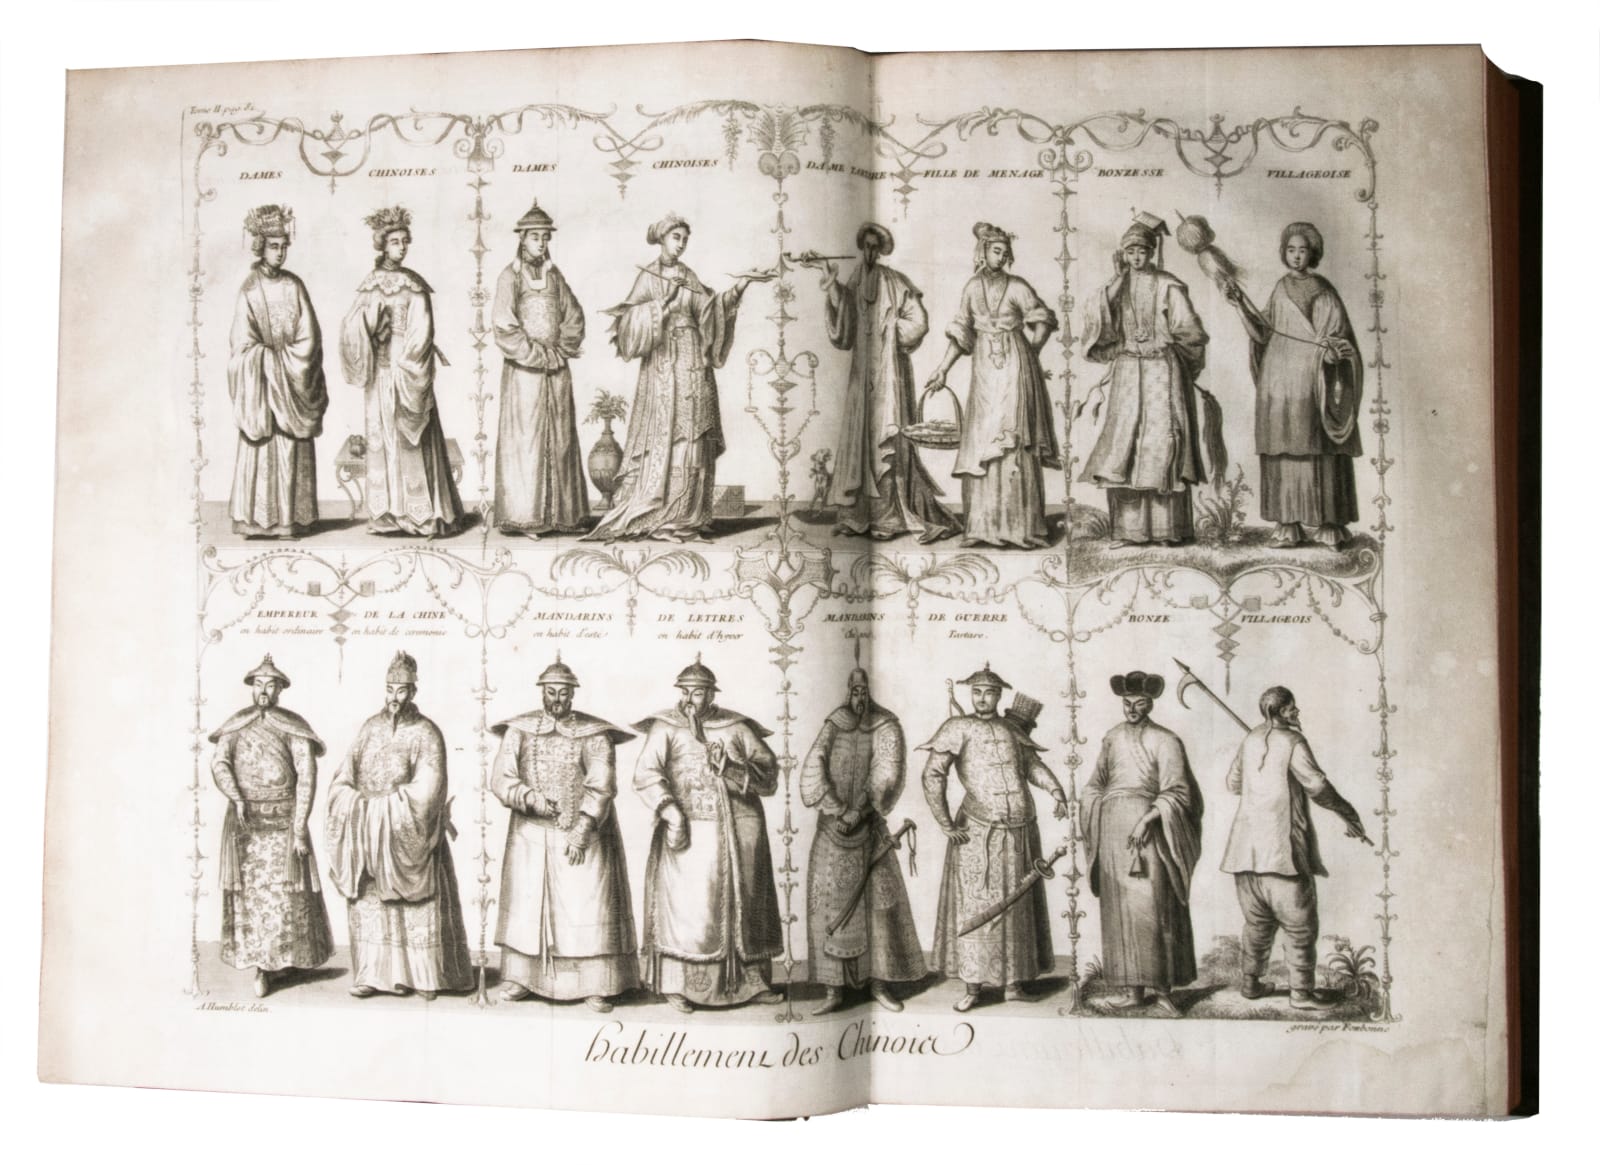 Tome II. pag. 82.
DAMES CHINOISES
DAMES CHINOISES
DAME TARTARE
FILLE DE MENAGE
BONZESSE
VILLAGEOISE
EMPEREUR DE LA CHINE
en habit ordinaire en habit de ceremonie
MANDARINS DE LETTRES
en habit d'esté en habit d'hyver
MANDARINS DE GUERRE
Tartare.
BONZE
VILLAGEOIS
A. Humblot delin.
gravé par Fonbonne
habillement des Chinois